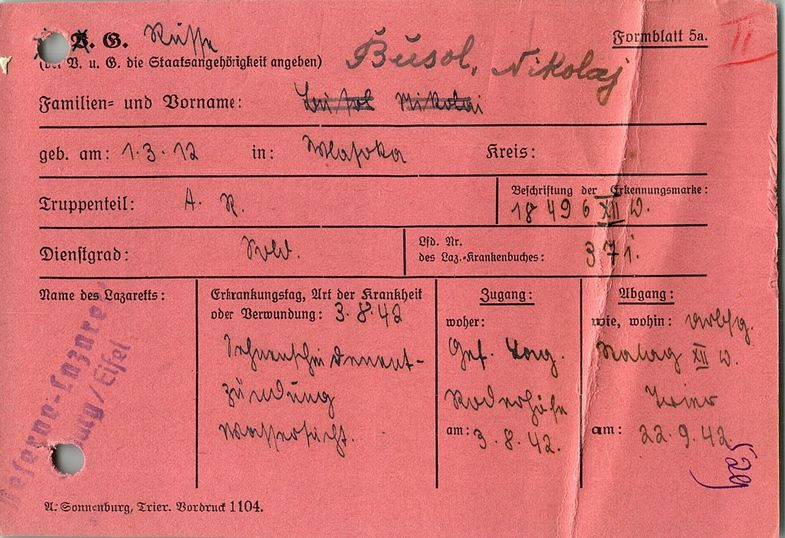 K. G. Russe
Formblatt 5a.
II
(bei V. u. G. die Staatsangehörigkeit angeben)
Busol, Nikolaj
Familien- und Vorname: Nikolai
geb. am: 1.3.12 in: Kreis:
Truppenteil: A. R.
Beschriftung der Erkennungsmarke:
18496 XII D.
Dienstgrad: Sold.
Lfd. Nr.
des Laz.-Krankenbuches: 371.
Name des Lazaretts:
Reserve-Lazarett
/Eifel
Erkrankungstag, Art der Krankheit
oder Verwundung: 3.8.42
Sehnenscheidenent-
zündung
Wassersucht.
Zugang:
woher:
Gef. Lag.
am: 3.8.42.
Abgang:
wie, wohin: arbfg.
Stalag XII D.
Trier
am: 22.9.42
529
A. Sonnenburg, Trier. Vordruck 1104.